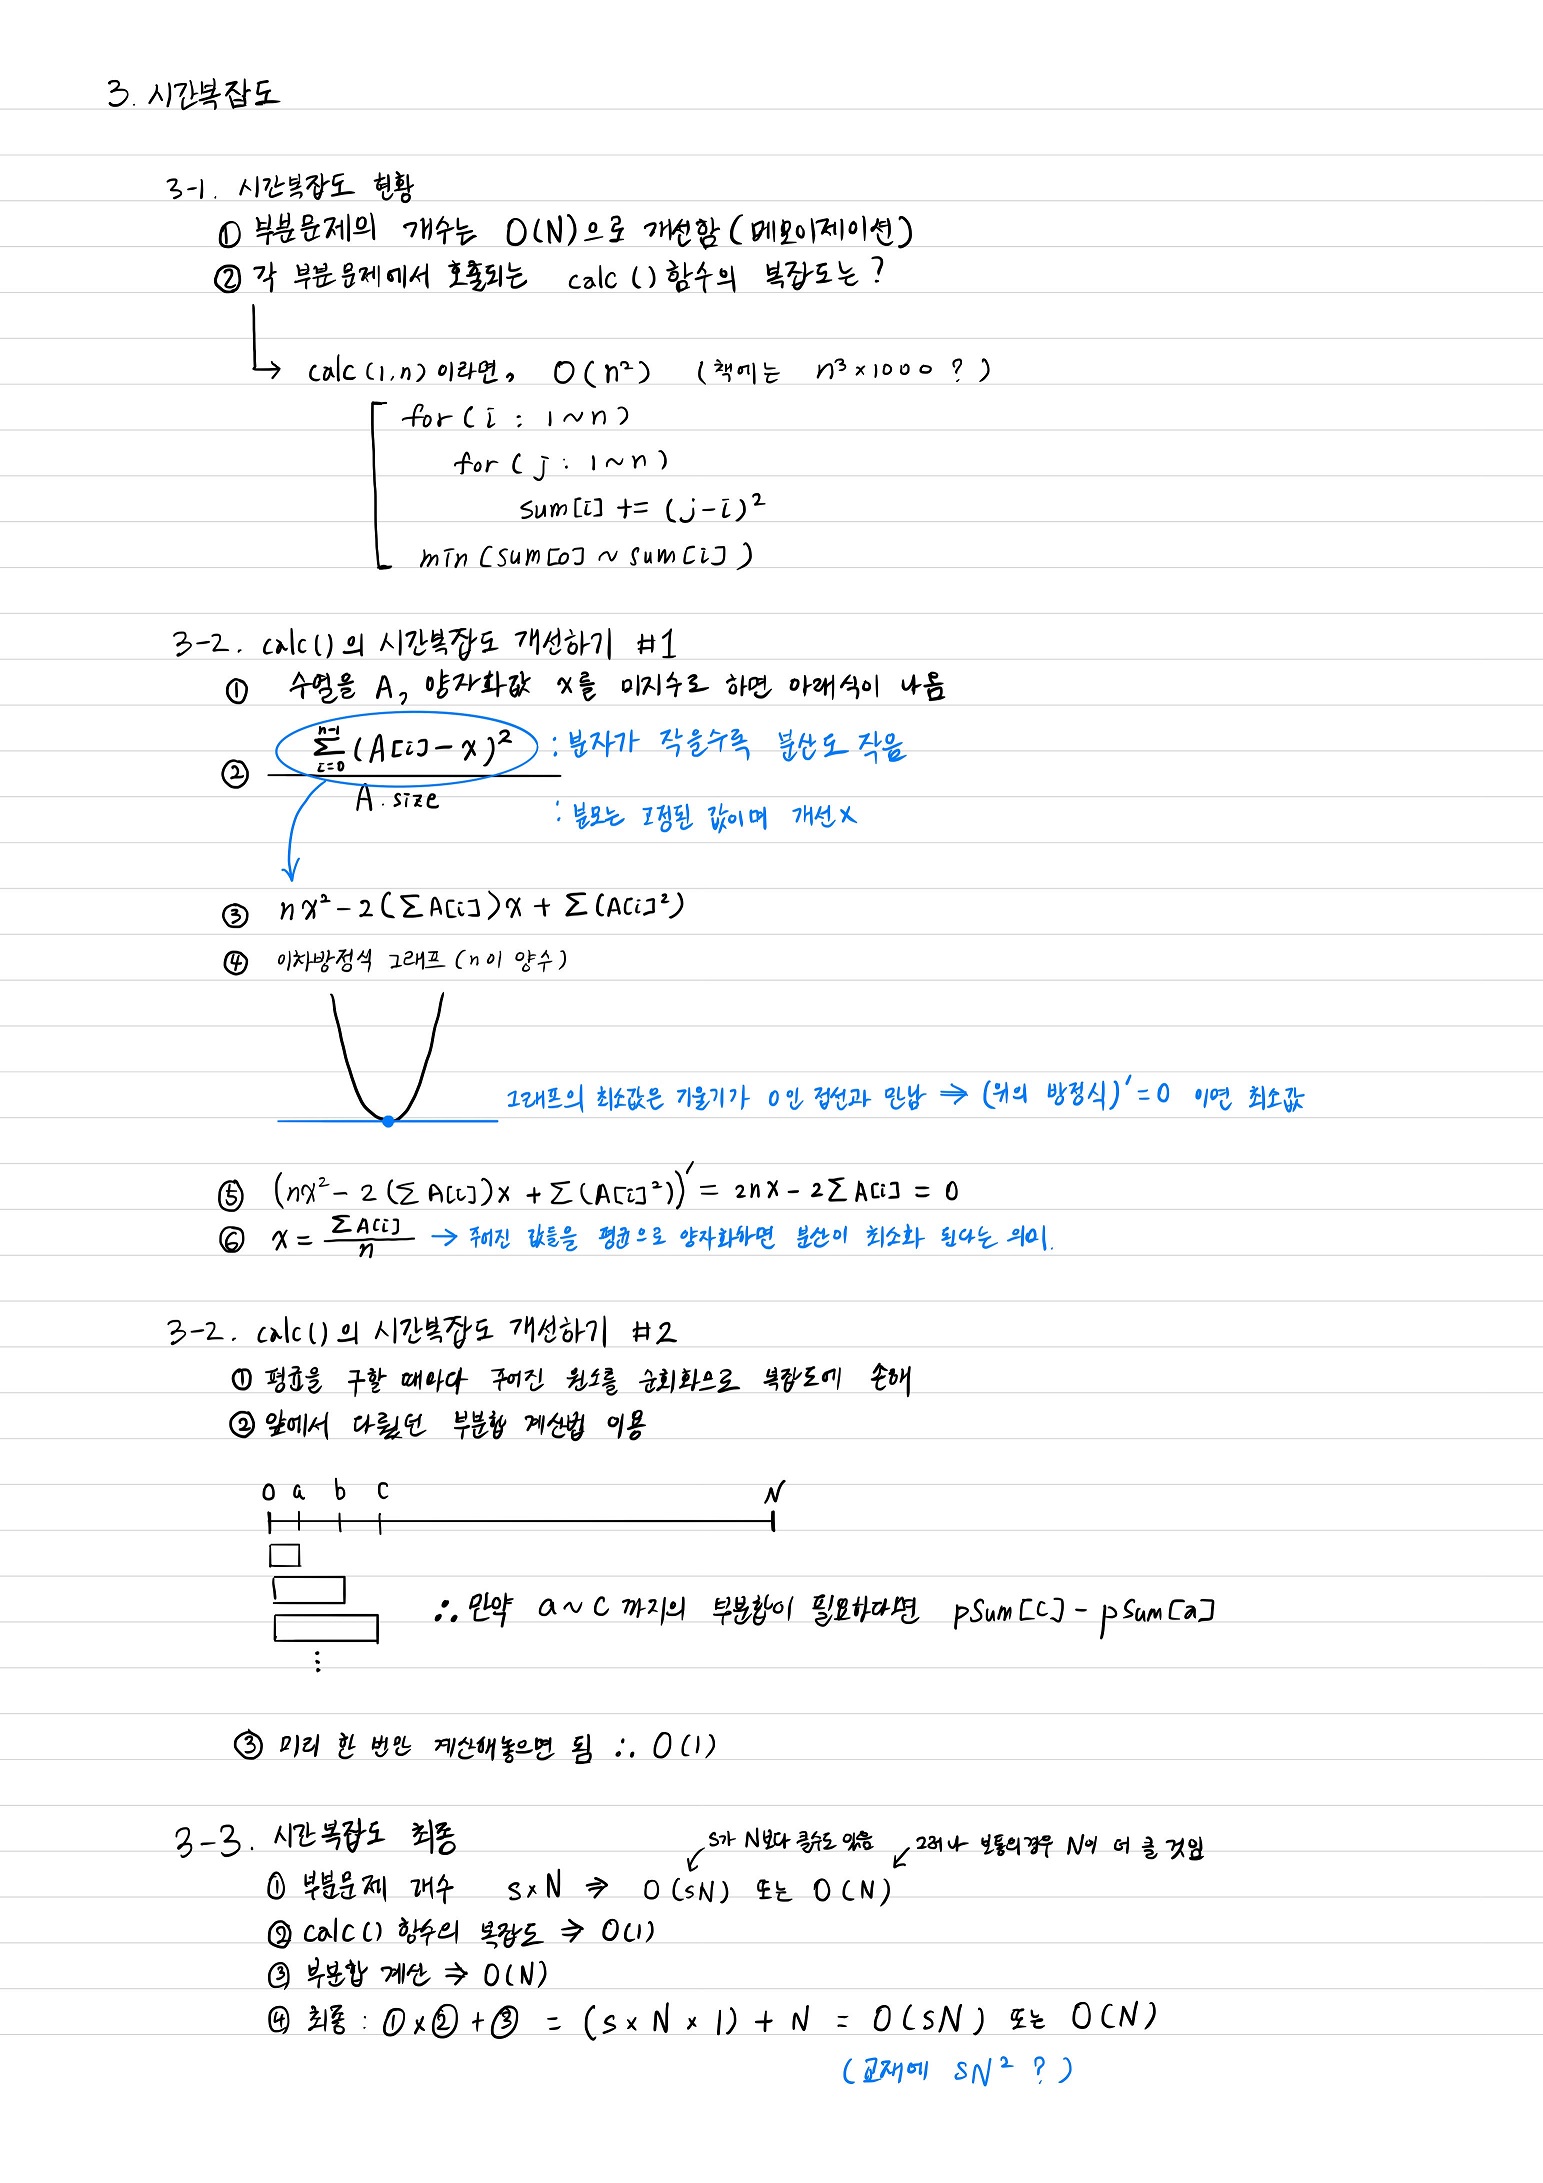 3. 시간복잡도
3-1. 시간복잡도 현황
① 부분문제의 개수는 O(N)으로 개선함 (메모이제이션)
② 각 부분문제에서 호출되는 calc () 함수의 복잡도는?
calc (1,n) 이라면, O(n²) (책에는 n³×1000 ?)
for (i : 1~n)
for (j : 1~n)
sum[i] += (j-i)²
min (sum[0] ~ sum[i])
3-2. calc()의 시간복잡도 개선하기 #1
① 수열을 A, 양자화값 x를 미지수로 하면 아래식이 나옴
② \frac{\sum_{i=0}^{n-1} (A[i]-x)²}{A.size}
: 분자가 작을수록 분산도 작음
: 분모는 고정된 값이며 개선 X
③ nx² - 2(∑A[i])x + ∑(A[i]²)
④ 이차방정식 그래프 (n이 양수)
그래프의 최소값은 기울기가 0인 접선과 만남 ⇒ (위의 방정식)′ = 0 이면 최소값
⑤ (nx² - 2(∑A[i])x + ∑(A[i]²))′ = 2nx - 2∑A[i] = 0
⑥ x = \frac{∑A[i]}{n} → 주어진 값들을 평균으로 양자화하면 분산이 최소화 된다는 의미.
3-2. calc()의 시간복잡도 개선하기 #2
① 평균을 구할 때마다 주어진 원소를 순회화으로 복잡도에 손해
② 앞에서 다뤘던 부분합 계산법 이용
0 a b c N
∴ 만약 a~c 까지의 부분합이 필요하다면 pSum[c] - pSum[a]
⋮
③ 미리 한 번만 계산해놓으면 됨 ∴ O(1)
3-3. 시간복잡도 최종
s가 N보다 클수도 있음 그러나 보통의경우 N이 더 클 것임
① 부분문제 개수 s×N ⇒ O(sN) 또는 O(N)
② calc() 함수의 복잡도 ⇒ O(1)
③ 부분합 계산 ⇒ O(N)
④ 최종 : ①×②+③ = (s×N×1) + N = O(sN) 또는 O(N)
(교재에 sN² ?)